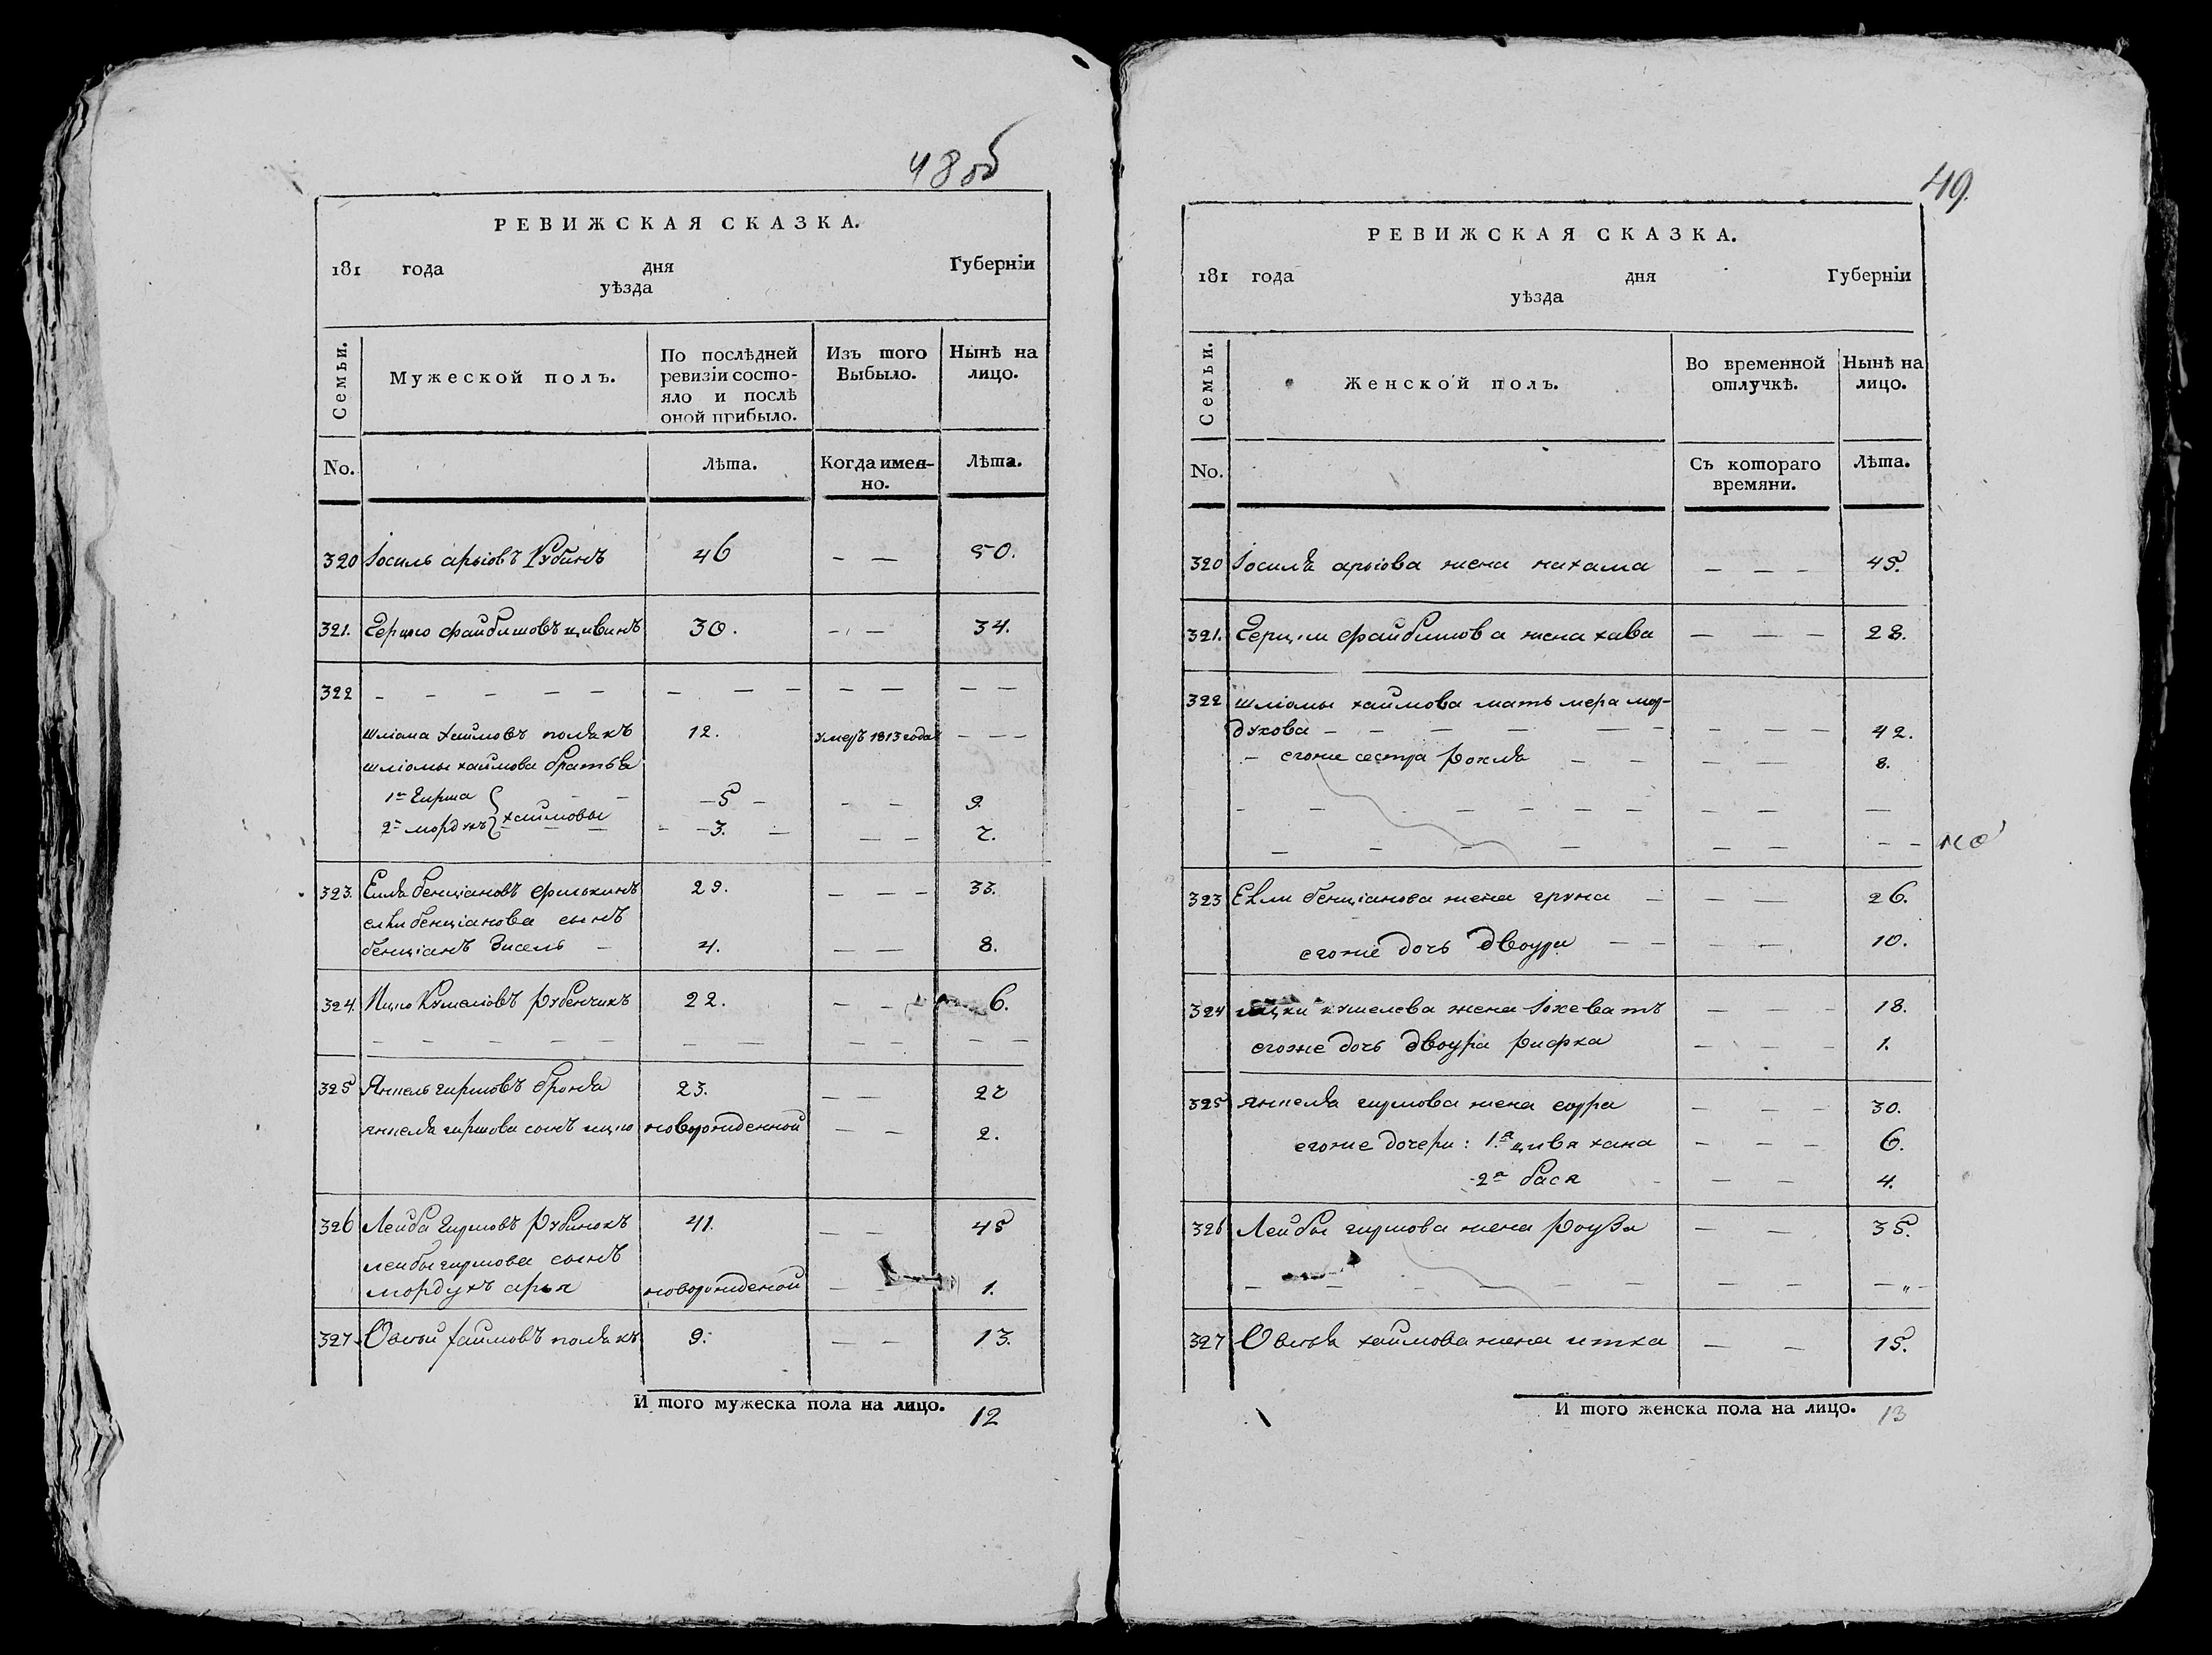 48 об
РЕВИЖСКАЯ СКАЗКА.
181 года дня Губернїи
уѣзда
Семьи. Мужеской полъ. По послѣдней Изъ того Нынѣ на
ревизїи состо- Выбыло. лицо.
яло и послѣ
оной прибыло.
No. Лѣта. Когда имен- Лѣта.
но.
320 Iосиль арьіовъ Рубинъ 46 — — 50.
321. Герцко файбишовъ цивинъ 30. — — 34.
322 — — — — — — — — — — — —
шліома хаимовъ полякъ 12. умеръ 1813 года — — —
шліомы хаимова братья
1й Гирша — — — 5 — — — 9.
2й мордухъ } хаимовы — — — 3. — — — 7.
323. Еля бенціановъ фрилькинъ 29. — — — 33.
ели бенціанова сынъ
бенціанъ Зисель — 4. — — 8.
324. Ицко Кушелювъ рубенчикъ 22. — — 6.
— — — — — — — — — — —
325 Янкель гиршовъ броня 23. — — 27
янкеля гиршова сынъ ицко новорожденной — — 2.
326 Лейба Гиршовъ рубинокъ 41. — — 45
лейбы гиршова сынъ
мордухъ арья новорожденой — 1.
327 Овсѣй хаимовъ полякъ 9. — — 13.
И того мужеска пола на лицо. 12
49.
РЕВИЖСКАЯ СКАЗКА.
181 года дня Губернїи
уѣзда
Семьи. Женской полъ. Во временной Нынѣ на
отлучкѣ. лицо.
No. Съ котораго Лѣта.
времяни.
320 Iосиля арьіова жена нахама — — — 45.
321. Герцки файбишова жена хава — — — 28.
322 шліомы хаимова мать мера мор-
духова — — — — — — — — 42.
— егоже сестра рохля — — — — 8.
— — — — — — — — —
— — — — — — — —
323 Ели бенціанова жена груна — — — 26.
егоже дочь двоура — — — — 10.
324 ицки кушелева жена Iохеватъ — — — 18.
егоже дочь двоура рифка — — — 1.
325 янкеля гиршова жена соура — — — 30.
егоже дочери: 1я цивя хана — — — 6.
2я бася — — 4.
326 Лейбы гиршова жена роуза — — 35.
— — — — — — — —
327 Овсѣя хаимова жена итка — — 15.
И того женска пола на лицо. 13